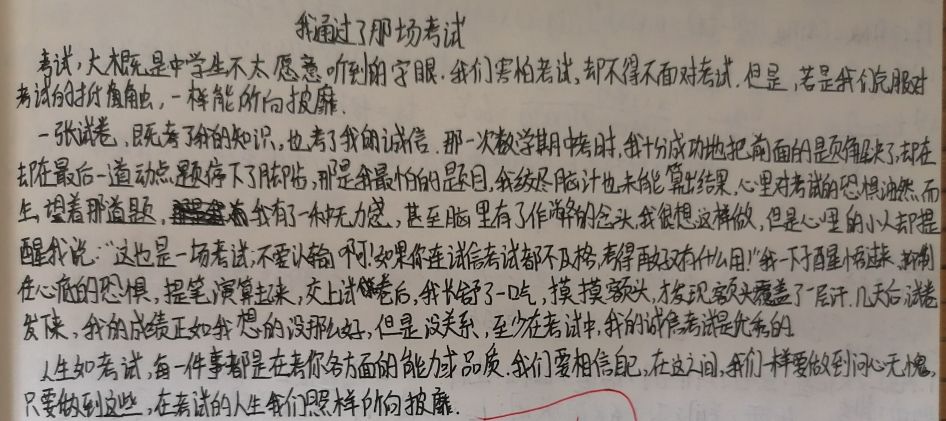 我通过了那场考试
考试,大概是中学生不太愿意听到的字眼.我们害怕考试,却不得不面对考试.但是,若是我们克服对
考试的抵触,一样能所向披靡.
一张试卷,既考了我的知识,也考了我的诚信.那一次数学期中考时,我十分成功地把前面的题解决了,却在
却在最后一道动点题停下了脚步,那是我最怕的题目,我绞尽脑汁也未能算出结果,心里对考试的恐惧油然而
生.望着那道题,我有了一种无力感,甚至脑里有了作弊的念头,我很想这样做,但是心里的小人却提
醒我说:"这也是一场考试,不要认输啊!如果你连诚信考试都不及格,考得再好又有什么用!"我一下子醒悟过来,抑制
住心底的恐惧,提笔演算起来,交上试卷后,我长舒了一口气,摸摸额头,才发现额头覆盖了一层汗.几天后试卷
发下来,我的成绩正如我想的没那么好,但是没关系,至少在考试中,我的诚信考试是优秀的.
人生如考试,每一件事都是在考你各方面的能力或品质.我们要相信自己,在这之间,我们一样要做到问心无愧,
只要做到这些,在考试的人生我们照样所向披靡.